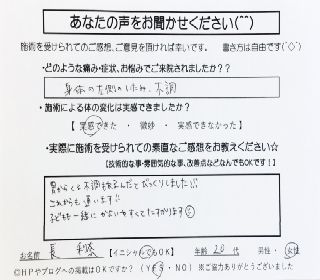 あなたの声をお聞かせください(^^)
施術を受けられてのご感想、ご意見を頂ければ幸いです。 書き方は自由です(^◇^)
・どのような痛み・症状、お悩みでご来院されましたか??
身体の左側のいたみ、不調
・施術による体の変化は実感できましたか?
【 実感できた ・ 微妙 ・ 実感できなかった 】
・実際に施術を受けられての素直なご感想をお教えください☆
【技術的な事・雰囲気的な事、改善点などなんでもOKです!】
胃からくる不調もあるんだとびっくりしました!!
これからも通います!!
子どもも一緒に かよいやすくてたすかります
お名前 長 【イニシャルでもOK】 年齢 20 代 男性・女性
◎HPやブログへの掲載はOKですか? (YES・NO) ※ご協力ありがとうございました